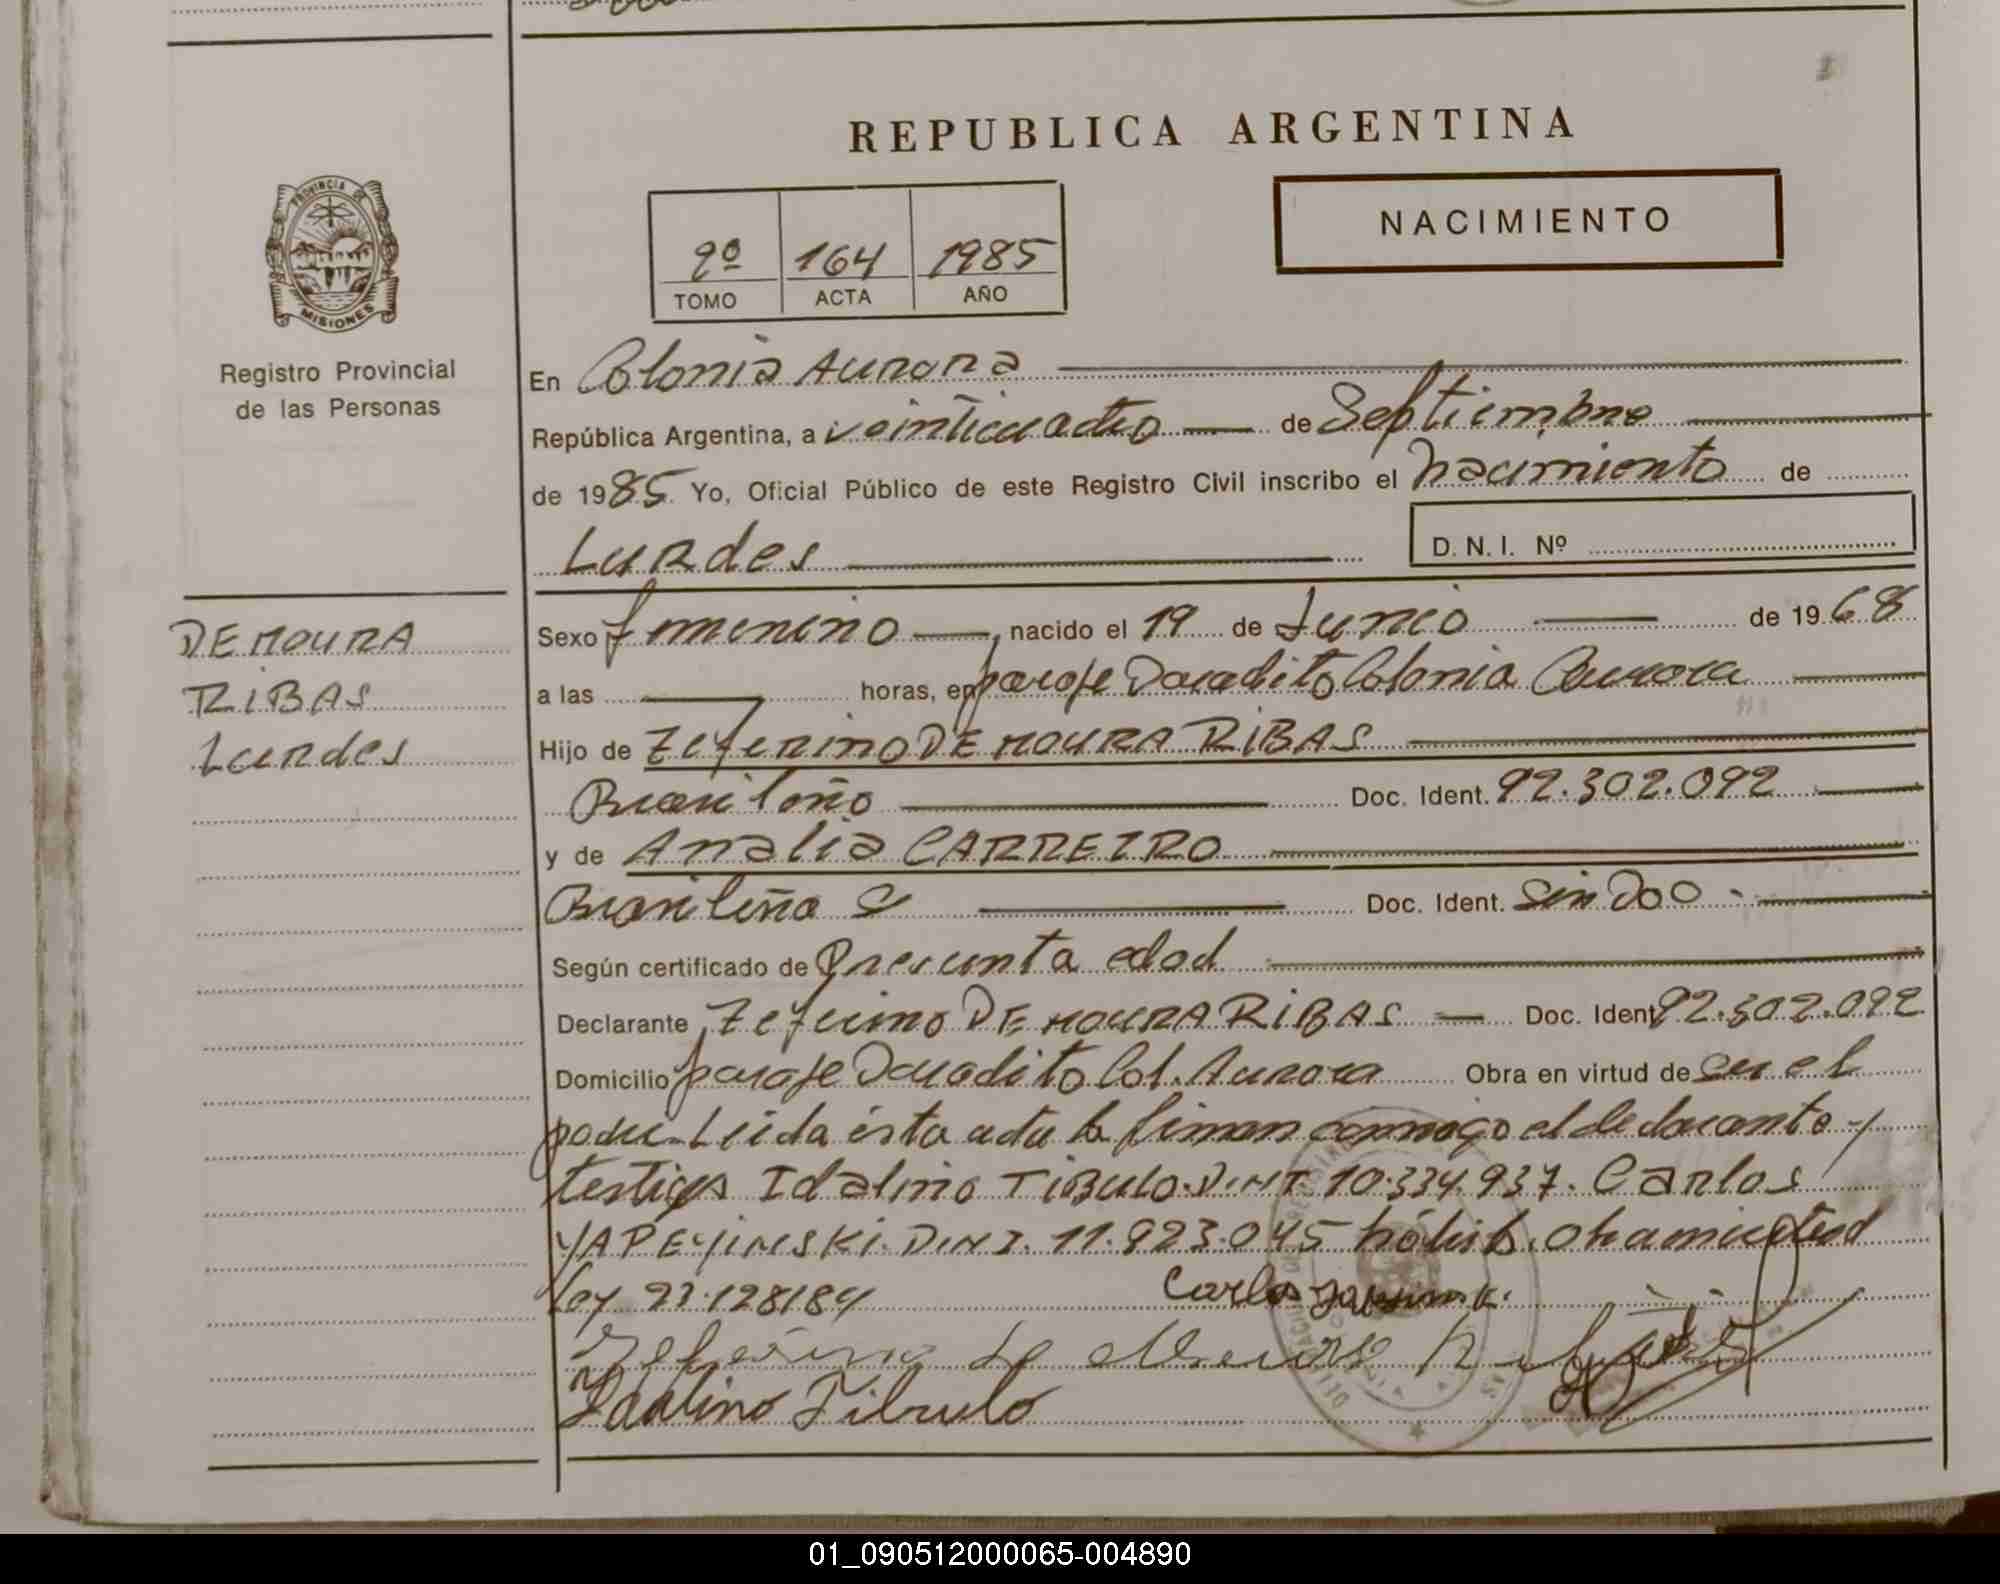 REPUBLICA ARGENTINA
NACIMIENTO
2º 164 1985
TOMO ACTA AÑO
PROVINCIA DE
MISIONES
Registro Provincial
de las Personas
En Colonia Aurora
República Argentina, a veinticuatro de Septiembre
de 1985 Yo, Oficial Público de este Registro Civil inscribo el nacimiento de
Lurdes D.N.I. Nº
DE MOURA
RIBAS
Lurdes
Sexo femenino nacido el 19 de Junio de 1968
a las horas, en paraje Doradito Colonia Aurora
Hijo de Zeferino DE MOURA RIBAS
Brasileño Doc. Ident. 92.302.092
y de Analia CARREIRO
Brasileña Doc. Ident. Sin Doc
Según certificado de Presunta edad
Declarante Zeferino DE MOURA RIBAS Doc. Ident 92.302.092
Domicilio paraje Doradito Col. Aurora Obra en virtud de en el
poder Leida ésta acta la firman conmigo el declarante y
testigos Idalino TIBULO. D.N.I. 10.334.937. Carlos
YAPEYINSKI. D.N.I. 11.923.045 hábil
Ley 23.128/84
Carlos
Zeferino de Moura
Idalino Tibulo
01_090512000065-004890